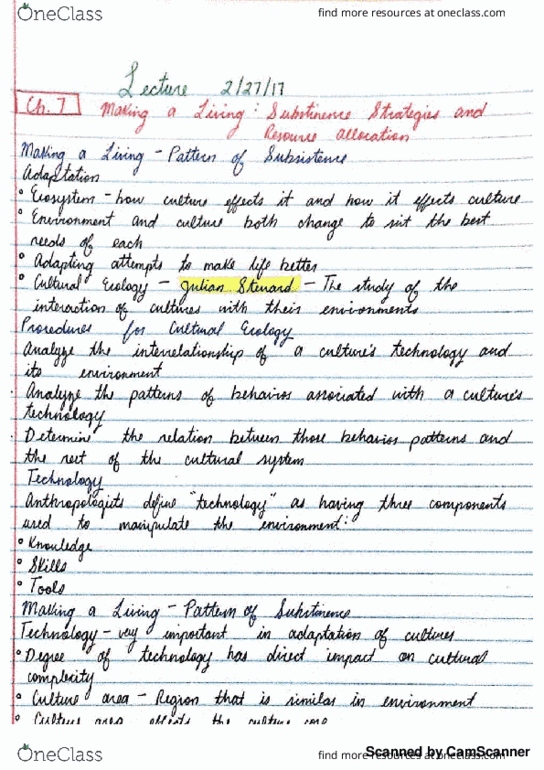 OneClass
find more resources at oneclass.com
Lecture 2/27/17
Ch. 7 Making a Living: Substinence Strategies and
Resource Allocation
Making a Living - Pattern of Subsistence
Adaptation
° Ecosystem - how culture effects it and how it effects culture
° Environment and culture both change to suit the best
needs of each
° Adapting attempts to make life better
° Cultural Ecology - Julian Steward - The study of the
interaction of cultures with their environments
Procedures for Cultural Ecology
Analyze the interrelationship of a culture's technology and
its environment
· Analyze the patterns of behavior associated with a culture's
technology
· Determine the relation between those behavior patterns and
the rest of the cultural system
Technology
Anthropologists define "technology" as having three components
used to manipulate the environment:
° Knowledge
° Skills
° Tools
Making a Living - Pattern of Substinence
Technology - very important in adaptation of cultures
° Degree of technology has direct impact on cultural
complexity
° Culture area - Region that is similar in environment
° Culture area effects the culture core
OneClass
find more resources at oneclass.com
Scanned by CamScanner